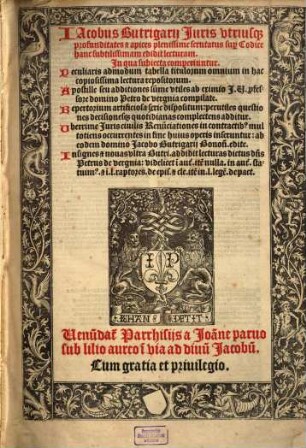 IAcobus Butrigarij Juris vtriusqȝ
profunditates ⁊ apices plenissime scrutatus suꝑ Codice
hanc subtilissimam edidit lecturam.
In qua subiecta comperiuntur.
Peculiaris admodum tabella titulorum omnium in hac
copiosissima lectura repositorum.
Apostille seu additiones sume vtiles ab eximio J. U. ꝓfes-
sore domino Petro de vergnia compilate.
Repertorium artificiosa serie dispositum: perutiles questio
nes decisionesqȝ quotidianas complectens additur.
Uberrime Juris ciuilis Renūciationes in contractibꝰ mul
totiens occurrentes in fine huius operis inseruntur: ab
eodem domino Jacobo Butrigarij Bonoñ. edite.
Insignes ⁊ nouas vltra Butri. addidit lecturas dictus dñs
Petrus de vergnia: videlicet ī auc̄. itē nulla. in auc̄. sta-
tuimꝰ. ⁊ i.l. raptores. de epis. ⁊ cle. itē in.l. legē. de pact.
I P
IEHAN PETIT
Uenūdat̄ Parrhisijs a Joāne paruo
sub lilio aureo ī via ad diuū Jacobū.
Cum gratia et priuilegio.